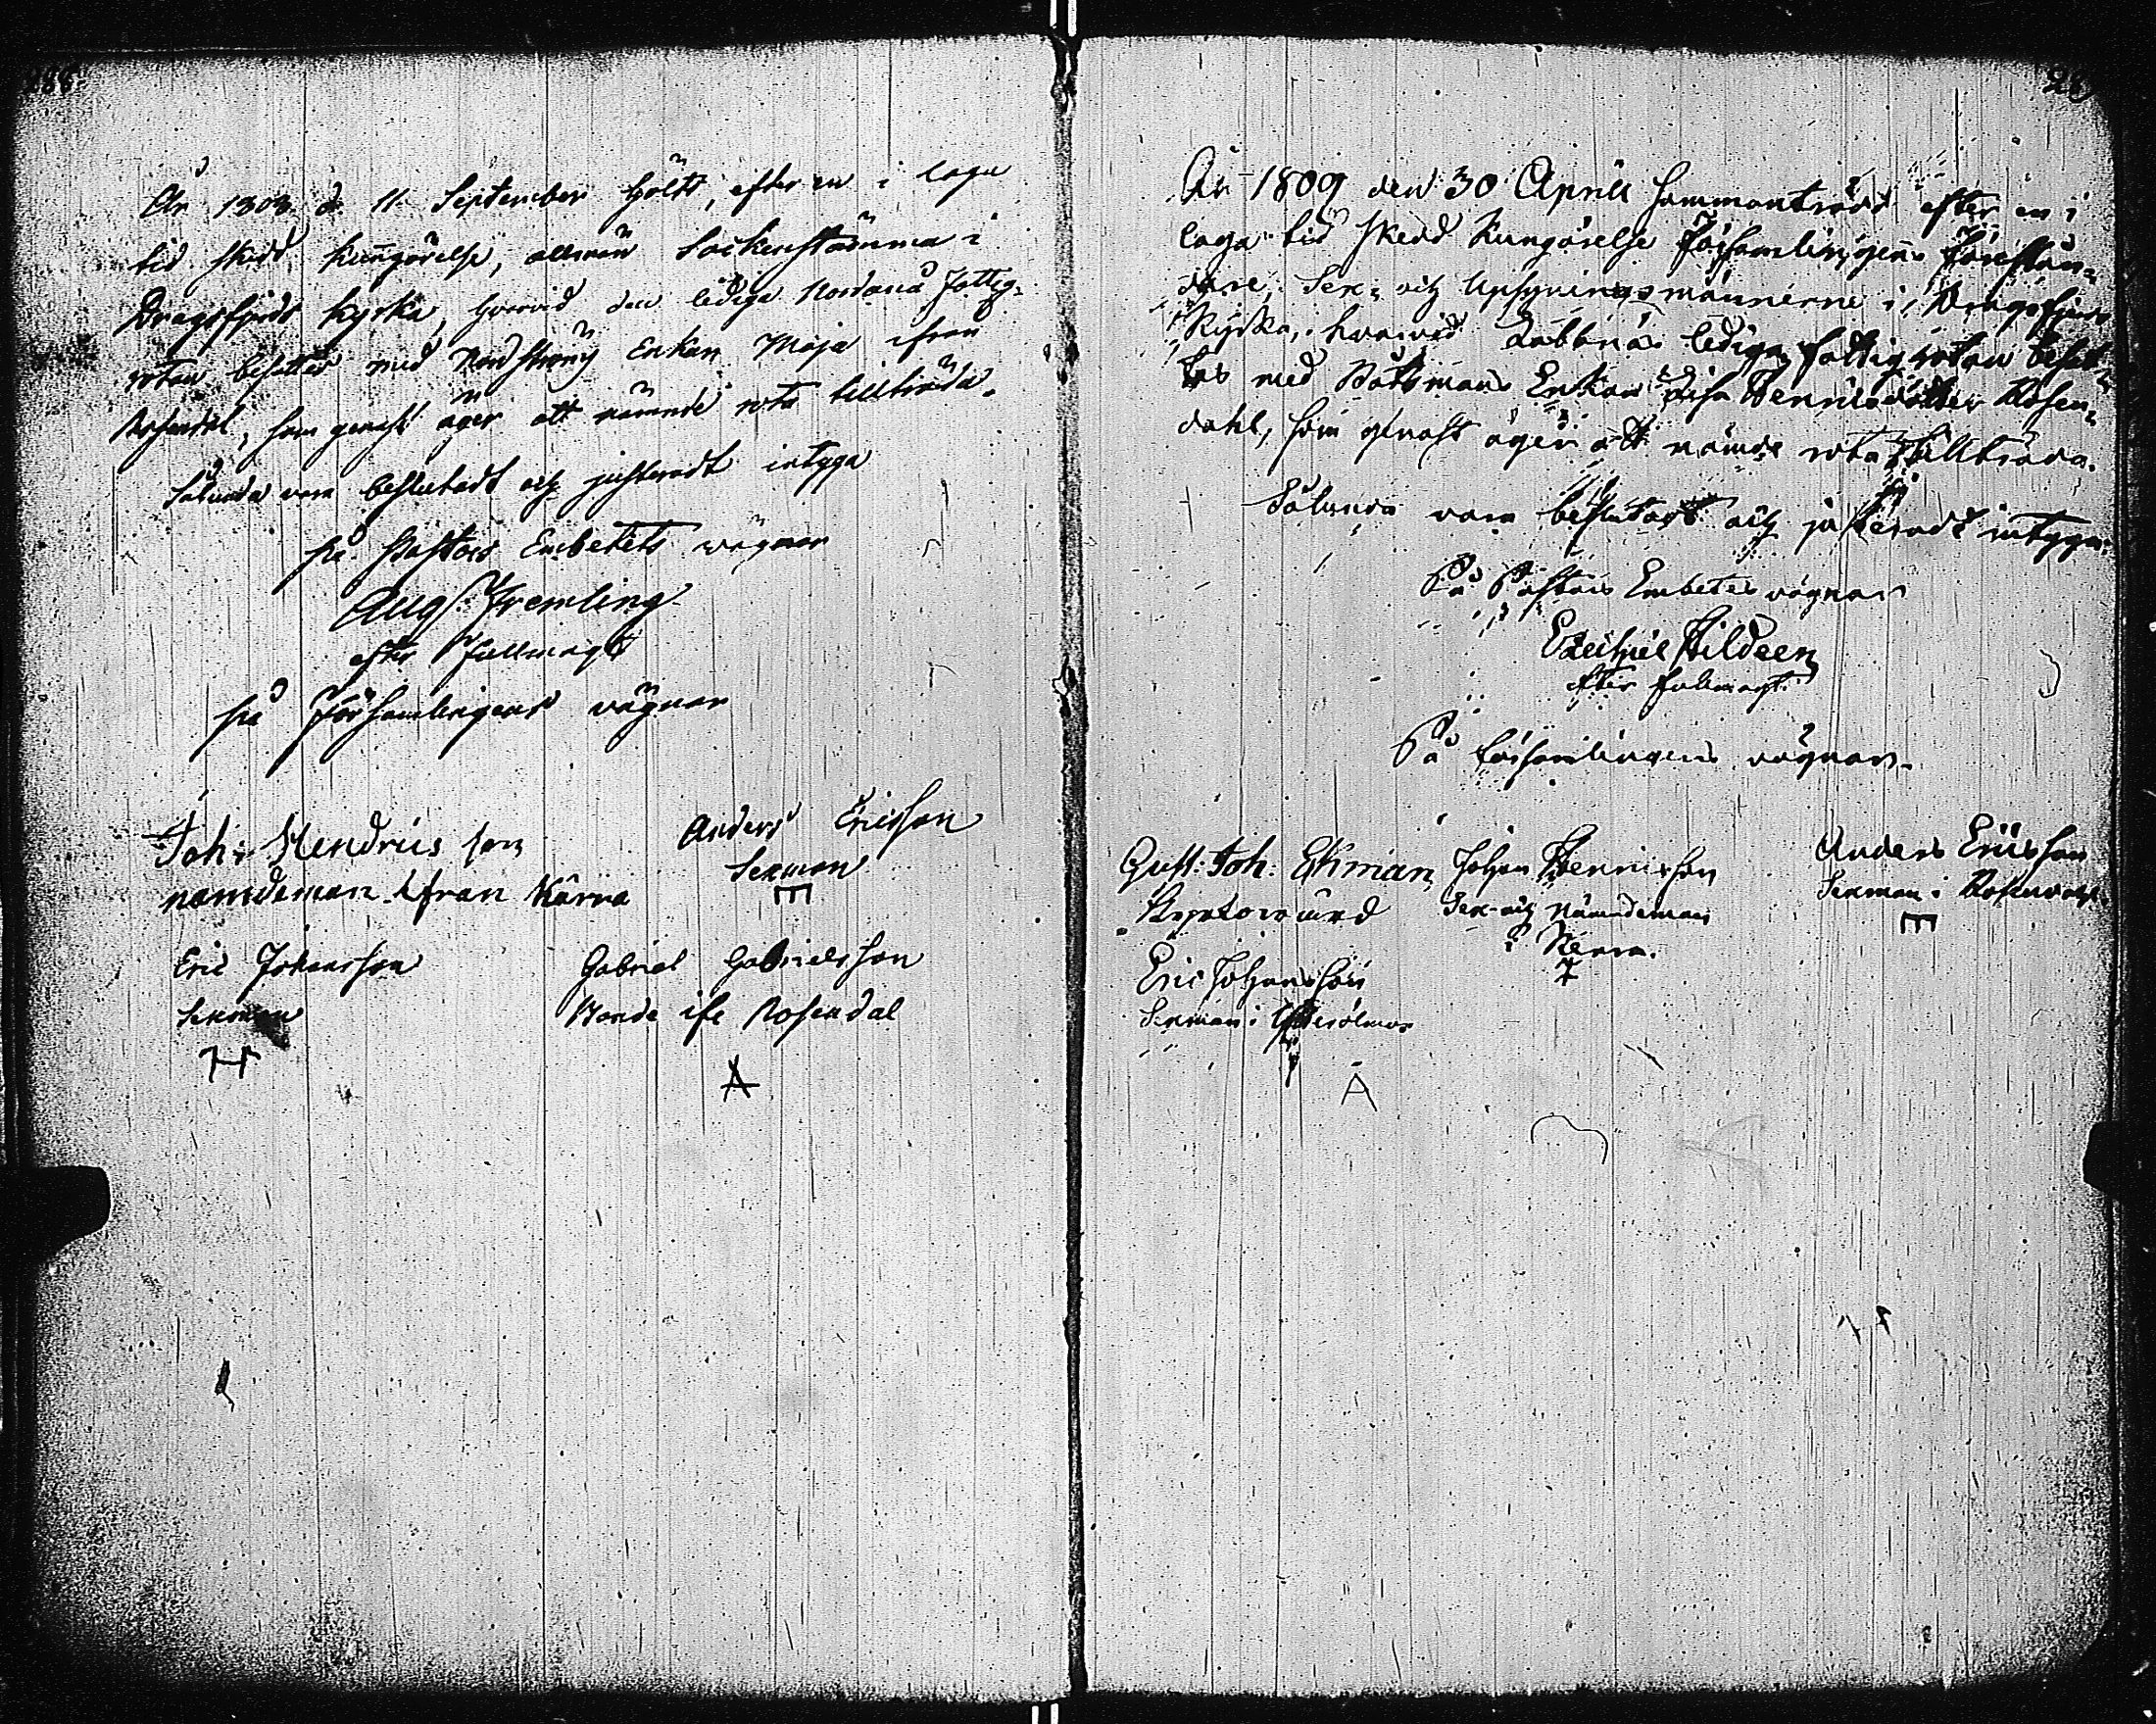 288.
År 1808 d. 11 September hölts, efter en i laga
tid skedd kungörelse, allmän Sockenstämma i
Dragsfjerds Kyrka, hvarvid den lediga Nordanå Fattig-
rotan besattes med Enkan Maja ifrån
Rosendal, som genast äger att nämnde rota tillträda.
Sålunda vara beslutadt och justeradt intyga
på Pastors Embetets vägnar
Aug. Fremling
efter fullmagt
på Församlingens vägnar
Joh: Hendrics son
namdeman ifran Kärra
Anders Ericsson
Sexman
E
Eric Johansson
Sexman
H
Gabriel Gabrielsson
Bonde ifr Rosendal
A
28
År 1809 den 30 April sammanträdde efter en i
laga tid skedd Kungörelse Församlingens Förestån-
dare, Sex- och Upsyningsmännerne i Dragsfjerds
Kyrka, hvarvid Labbnäs lediga fattig rotan besat-
tes med Båtsmans Enkan Lisa Henricsdotter Rosen-
dahl, som genast äger att nämde rota tillträda.
Sålunda vara beslutadt och justeradt intyga.
På Pastors Embetes vägnar
Ezechiel Hildeen
efter fullmagt.
På församlingens vägnar.
Gust: Joh: Ekman
Johan Henricsson
Sex- och Nämndeman
i Kerra.
Anders Ericsson
Sexman i Rosendahl
E
Eric Johansson
Sexman i
A